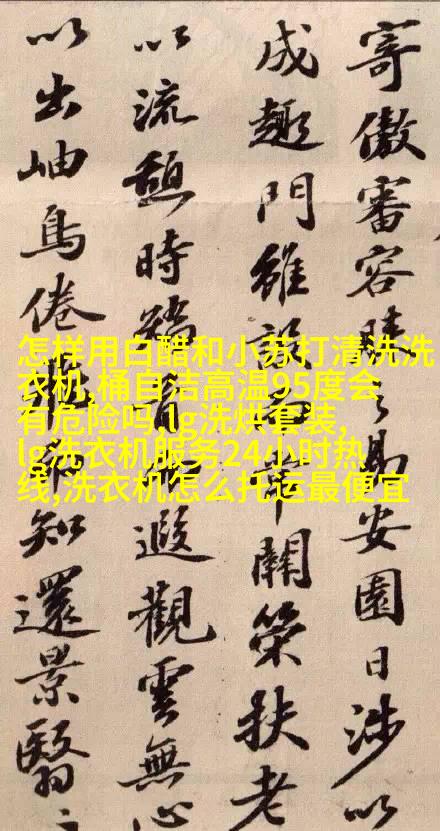 寄傲審容膝之易安園日涉以
成趣門雖設常關策扶老
以流憩時矯首遐觀雲無心
以出岫鳥倦飛知還景翳〻
怎样用白醋和小苏打清洗洗
衣机,桶自洁高温95度会
有危险吗 lg洗烘套装,
lg洗衣机服务24小时热
线,洗衣机怎么托运最便宜